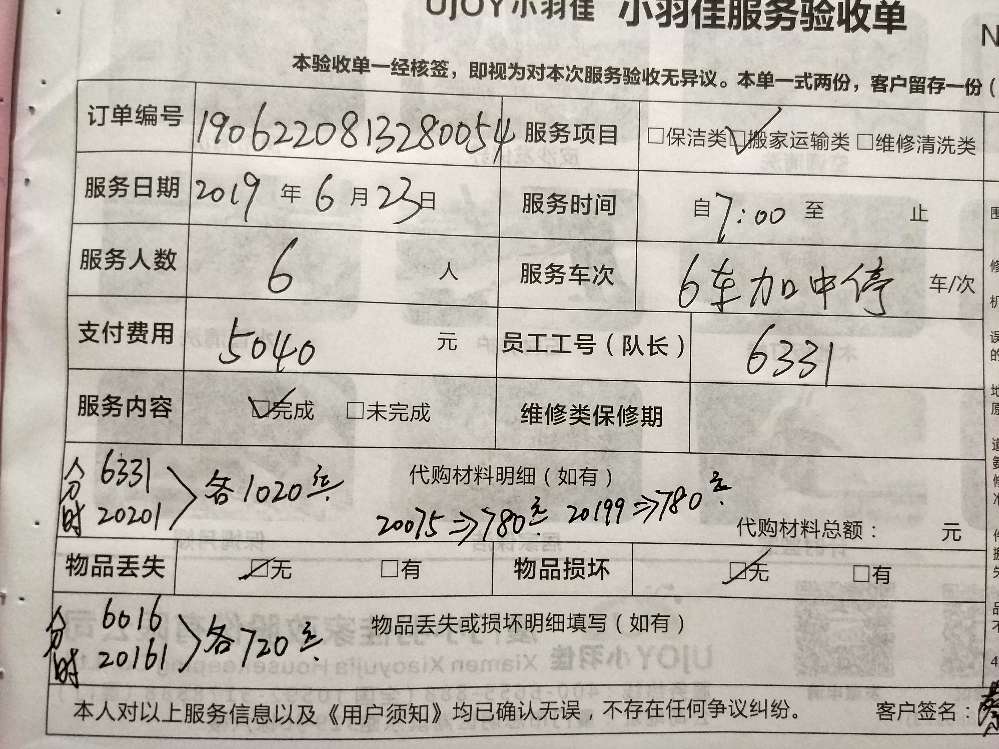 UJOY小羽佳 小羽佳服务验收单
N
本验收单一经核签，即视为对本次服务验收无异议。本单一式两份，客户留存一份（
订单编号 1906220813280054 服务项目 □保洁类 ☑搬家运输类 □维修清洗类
服务日期 2019 年 6 月 23 日 服务时间 自 7:00 至 止
服务人数 6 人 服务车次 6车加中停 车/次
支付费用 5040 元 员工工号（队长） 6331
服务内容 ☑完成 □未完成 维修类保修期
分时 6331 20201 > 各1020元 代购材料明细（如有）
20075⇒780元 20199⇒780元 代购材料总额： 元
物品丢失 ☑无 □有 物品损坏 ☑无 □有
分时 6016 20161 > 各720元 物品丢失或损坏明细填写（如有）
本人对以上服务信息以及《用户须知》均已确认无误，不存在任何争议纠纷。 客户签名：